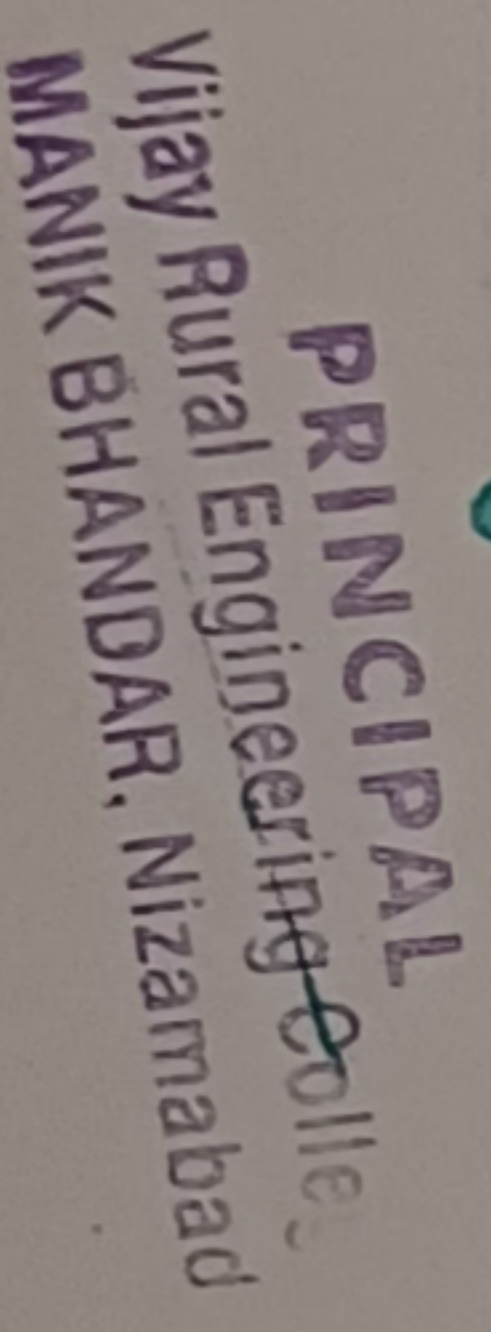 PRINCIPAL
Vijay Rural Engineering Colle
MANIK BHANDAR, Nizamabad